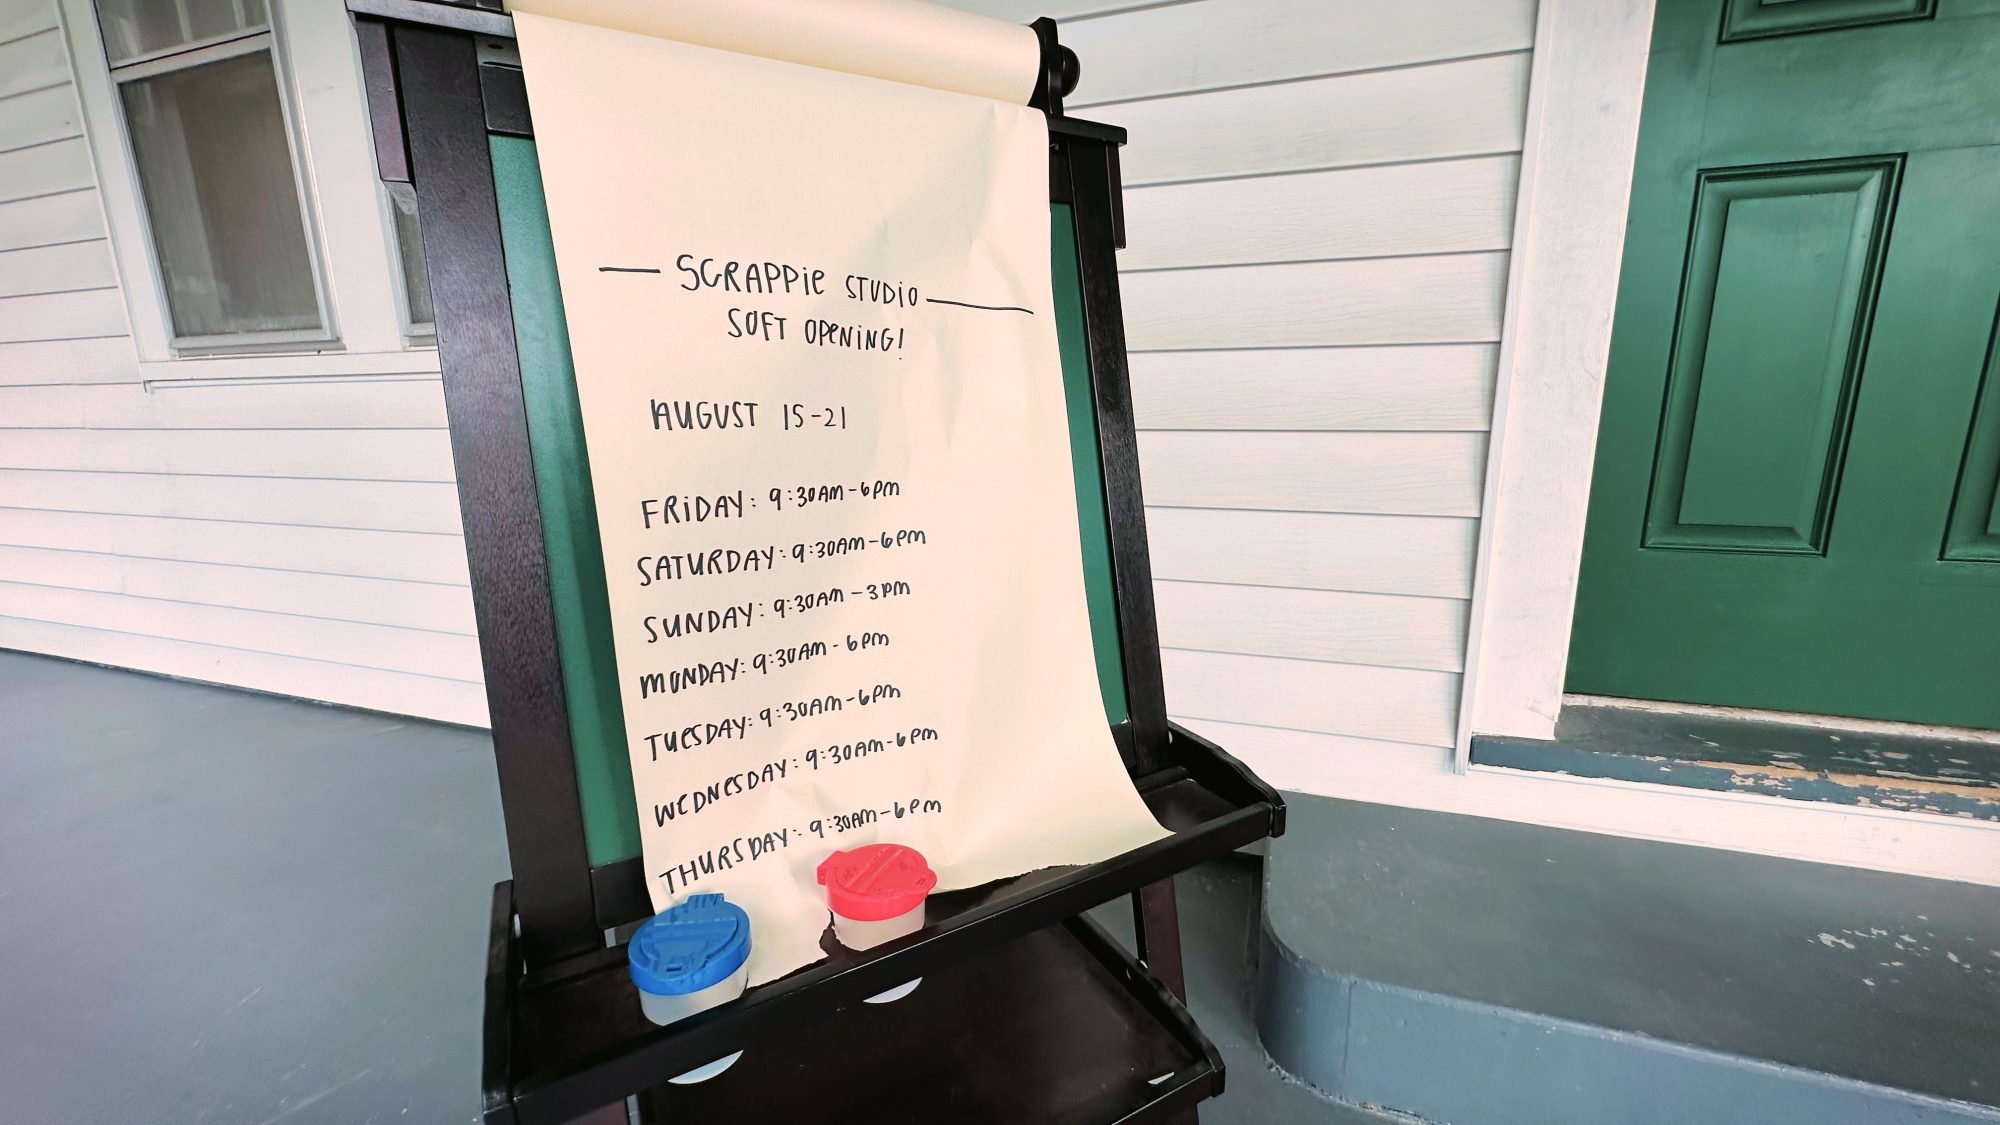 SCRAPPiE STUDiO
SOFT OPENiNG!
AUGUST 15-21
FRiDAY: 9:30AM-6PM
SATURDAY: 9:30AM-6PM
SUNDAY: 9:30AM-3PM
MONDAY: 9:30AM-6PM
TUESDAY: 9:30AM-6PM
WEDNESDAY: 9:30AM-6PM
THURSDAY: 9:30AM-6PM